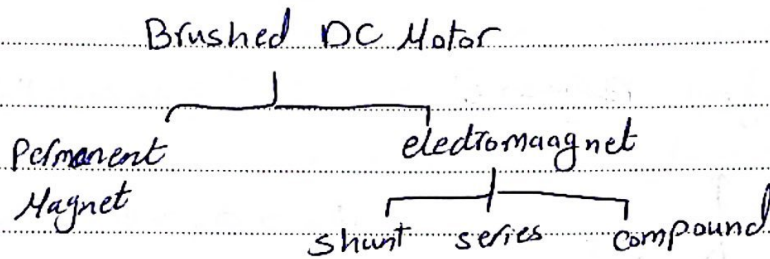 Brushed DC Motor
Permanent electromaagnet
Magnet
shunt series compound